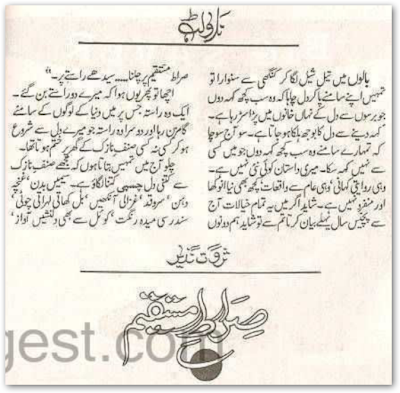 ناولٹ
بالوں میں تیل شیل لگا کر کنگھی سے سنوارا تو
تمہیں اپنے سامنے پا کر دل چاہا کہ وہ سب کچھ کہہ دوں
جو برسوں سے دل کے نہاں خانوں میں پڑا سڑ رہا ہے۔
کہہ دینے سے دل کا بوجھ ہلکا ہو جاتا ہے۔ سو آج سوچا
کہ تمہارے سامنے وہ سب کچھ کہہ دوں جو میں کسی
سے نہیں کہہ سکا۔ میری داستان کوئی نئی نہیں ہے
وہی روایتی کہانی، وہی عام سے واقعات، کچھ بھی نیا انوکھا
اور منفرد نہیں ہے۔ شاید اگر میں یہ تمام خیالات آج
سے پچیس سال پہلے بیان کرتا تم سے تو شاید ہم دونوں
صراط مستقیم پر چلنا..... سیدھے راستے پر۔"
اچھا تو پھر یوں ہوا کہ میرے دو راستے بن گئے۔
ایک وہ راستہ جس پر میں دنیا کے لوگوں کے سامنے
گامزن رہا اور دوسرا وہ راستہ جو میرے دل سے شروع
ہو کر کسی نہ کسی صنف نازک کے گھر پر ختم ہوتا تھا۔
چلو آج میں تمہیں بتاتا ہوں کہ مجھے صنف نازک
سے کتنی دل چسپی کتنا لگاؤ ہے۔ سیمیں بدن، غنچہ
دہن، سرو قد، غزالی آنکھیں، بل کھاتی لہراتی چوٹی،
سندر سی میدہ رنگت، کوئل سے بھی دلنشیں آواز،
ثروت نذیر
صراط مستقیم
gest.com